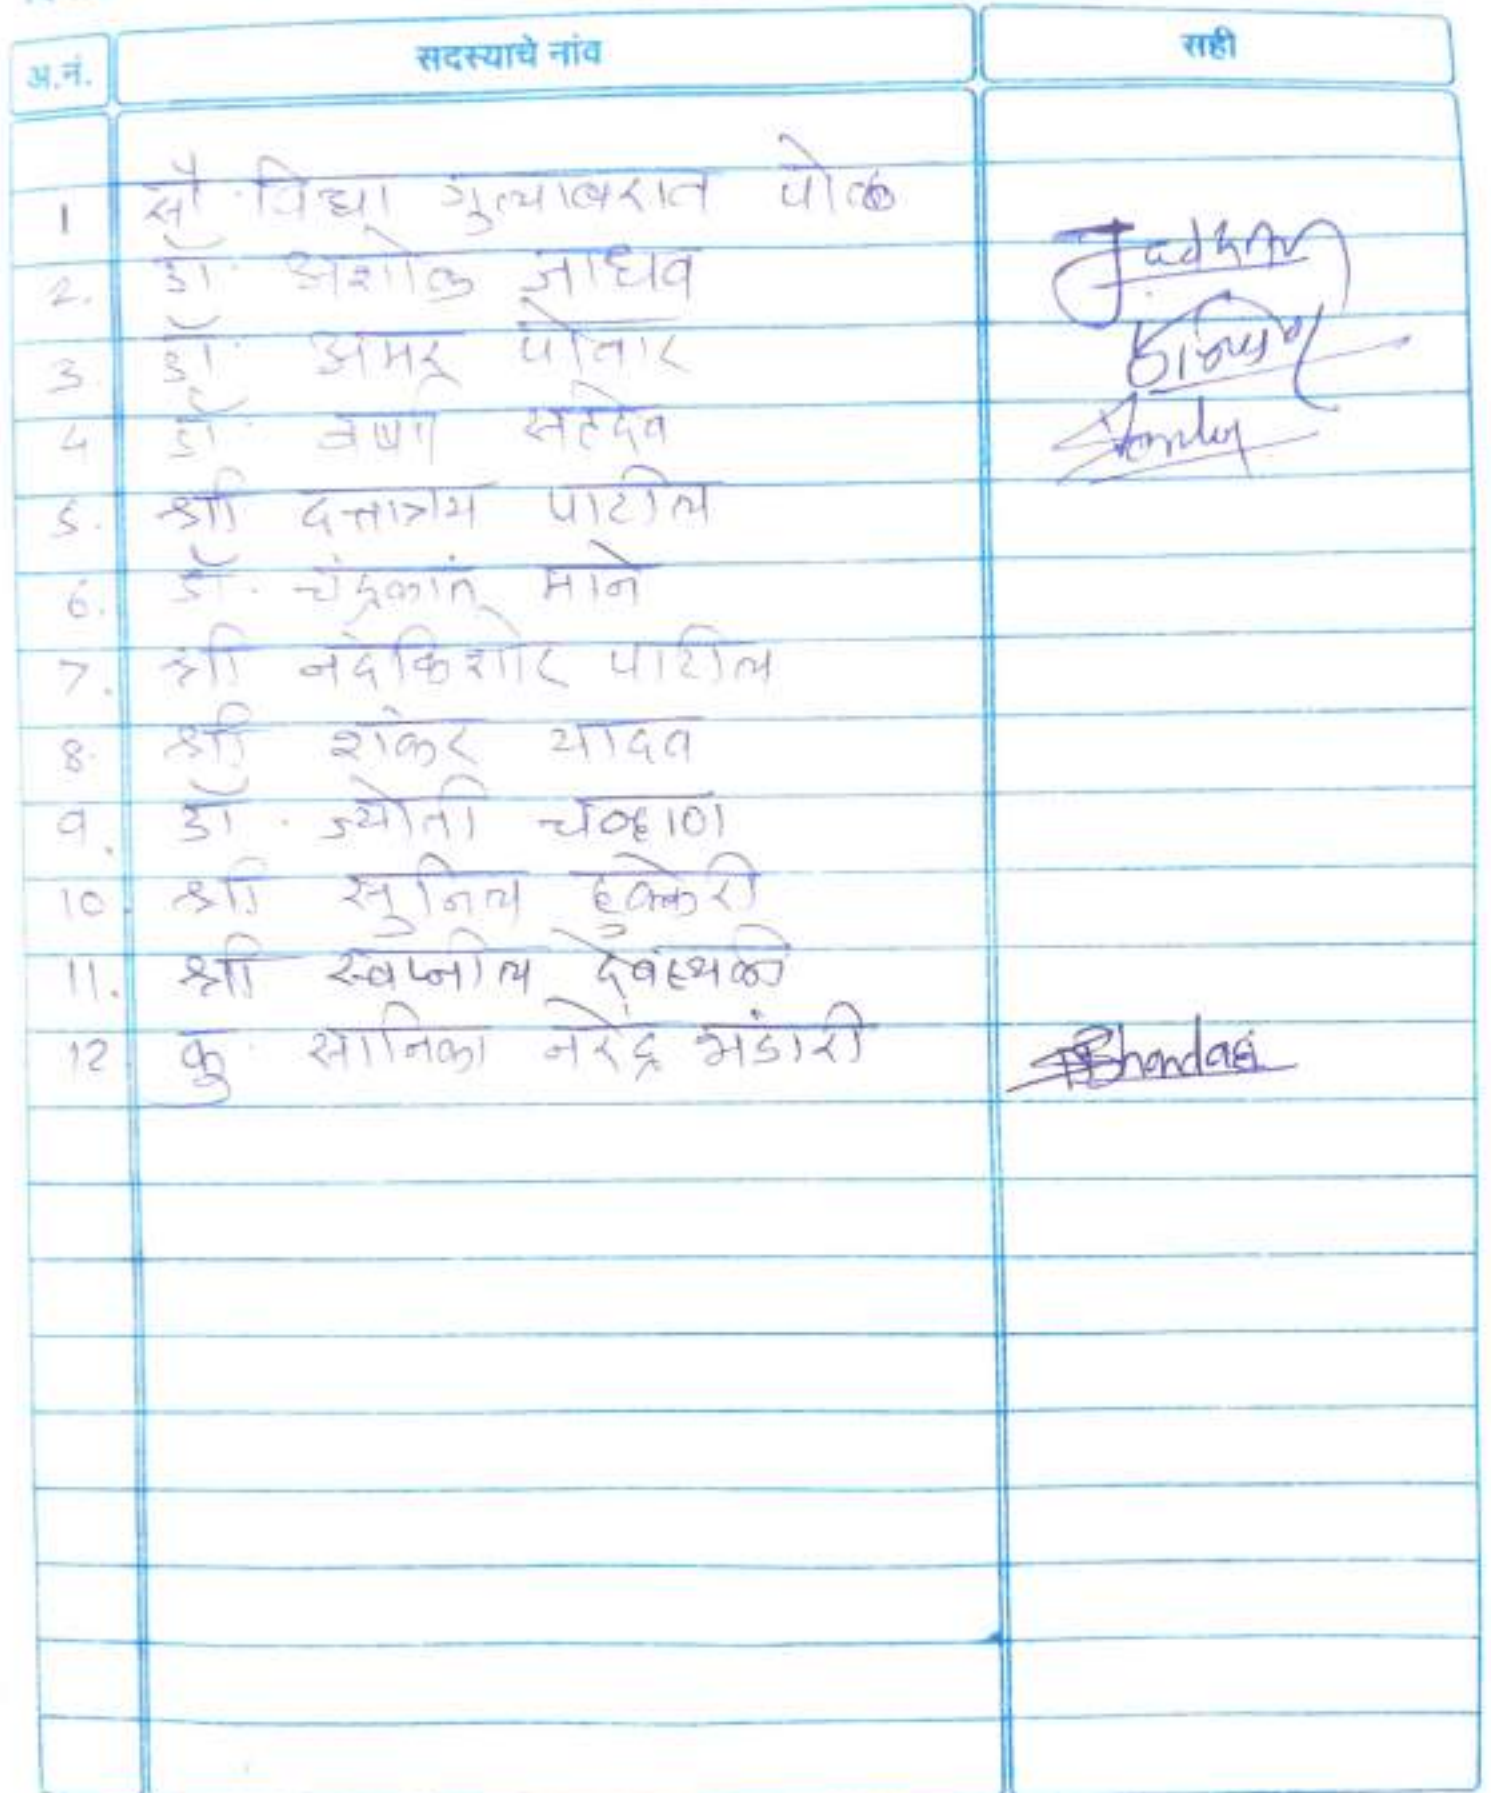 अ.नं. सदस्याचे नांव सही
1 सौ. विद्या गुलाबराव पोळ
2. डॉ. अशोक जाधव Jadhav
3. डॉ. अमर पोवार
4 डॉ. वर्षा सहदेव
5. श्री दत्तात्रय पाटील
6. डॉ. चंद्रकांत माने
7. श्री नंदकिशोर पाटील
8. श्री शंकर यादव
9. डॉ. ज्योती चव्हाण
10. श्री सुनिल हुक्केरी
11. श्री स्वप्नील देवस्थळी
12 कु. सानिका नरेंद्र भंडारी Bhandari